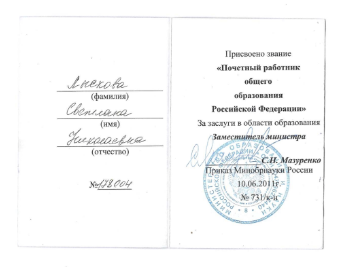 Лыскова
(фамилия)
Светлана
(имя)
Николаевна
(отчество)
№178004
Присвоено звание
«Почетный работник
общего
образования
Российской Федерации»
За заслуги в области образования
Заместитель министра
С.Н. Мазуренко
Приказ Минобрнауки России
10.06.2011г.
№ 731/к-н